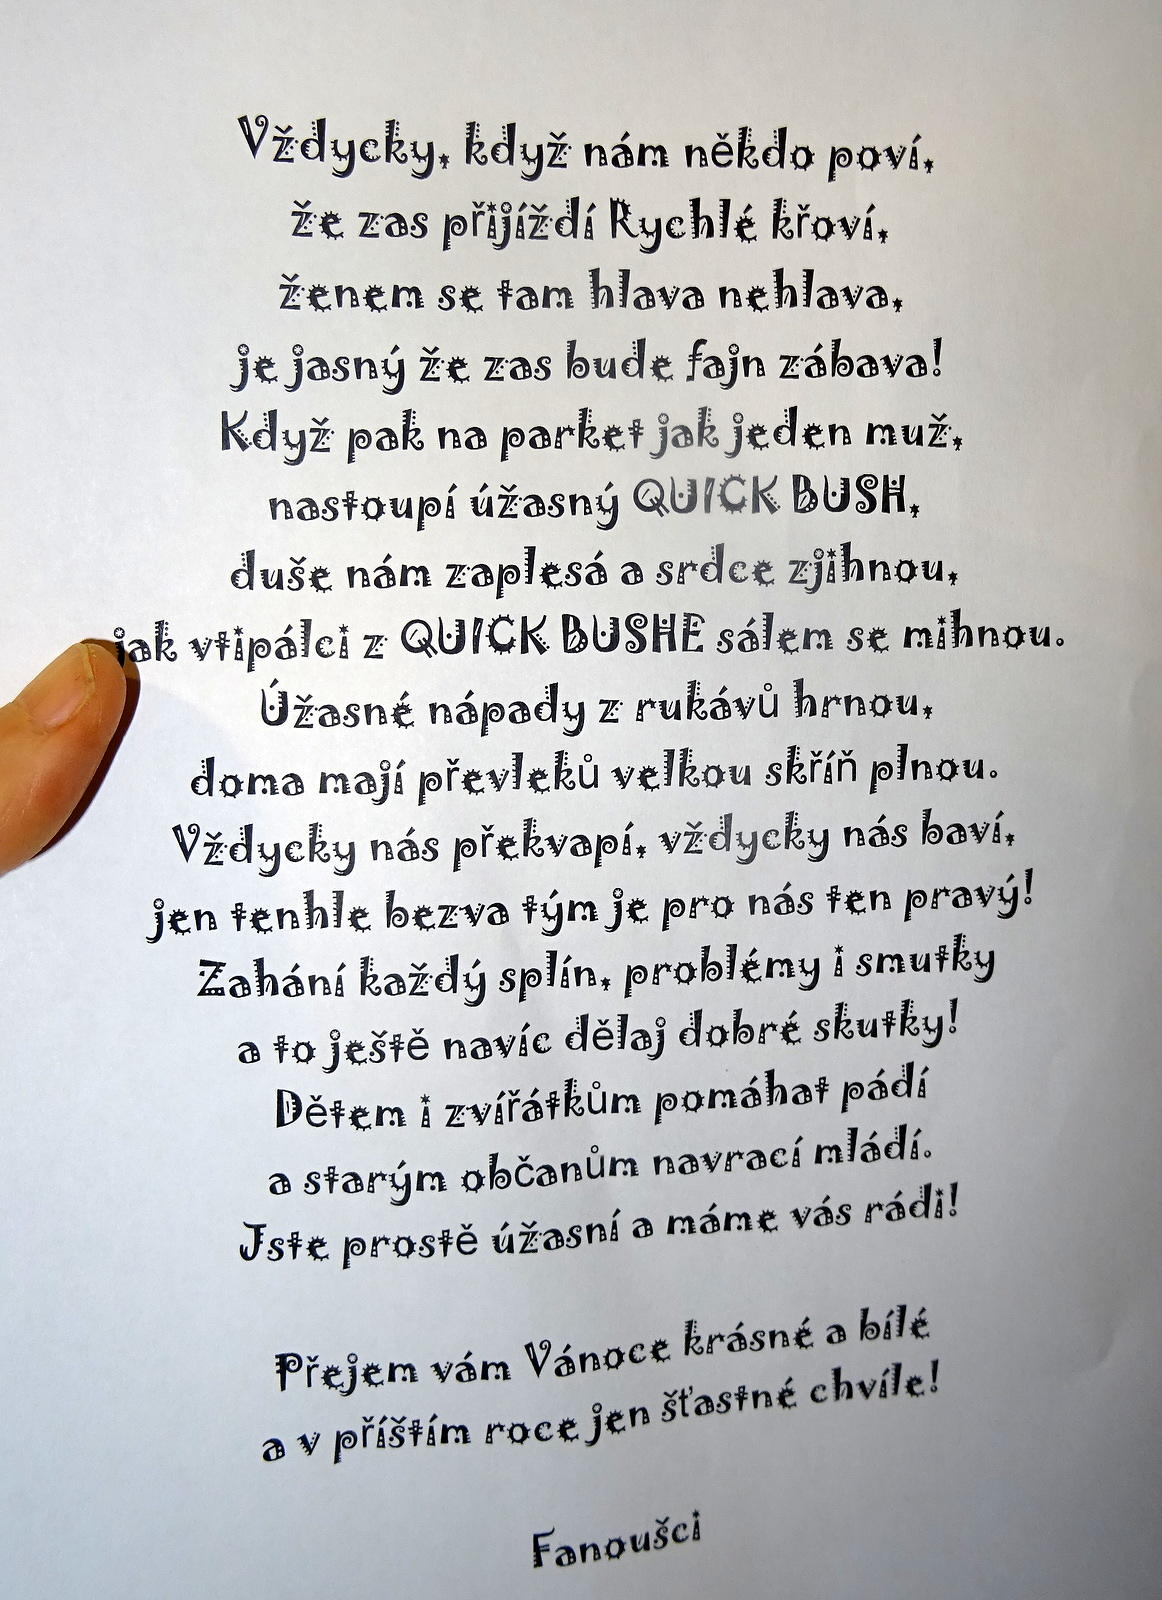 Vždycky, když nám někdo poví,
že zas přijíždí Rychlé křoví,
ženem se tam hlava nehlava,
je jasný že zas bude fajn zábava!
Když pak na parket jak jeden muž,
nastoupí úžasný QUICK BUSH,
duše nám zaplesá a srdce zjihnou,
jak vtipálci z QUICK BUSHE sálem se mihnou.
Úžasné nápady z rukávů hrnou,
doma mají převleků velkou skříň plnou.
Vždycky nás překvapí, vždycky nás baví,
jen tenhle bezva tým je pro nás ten pravý!
Zahání každý splín, problémy i smutky
a to ještě navíc dělaj dobré skutky!
Dětem i zvířátkům pomáhat pádí
a starým občanům navrací mládí.
Jste prostě úžasní a máme vás rádi!
Přejem vám Vánoce krásné a bílé
a v příštím roce jen šťastné chvíle!
Fanoušci